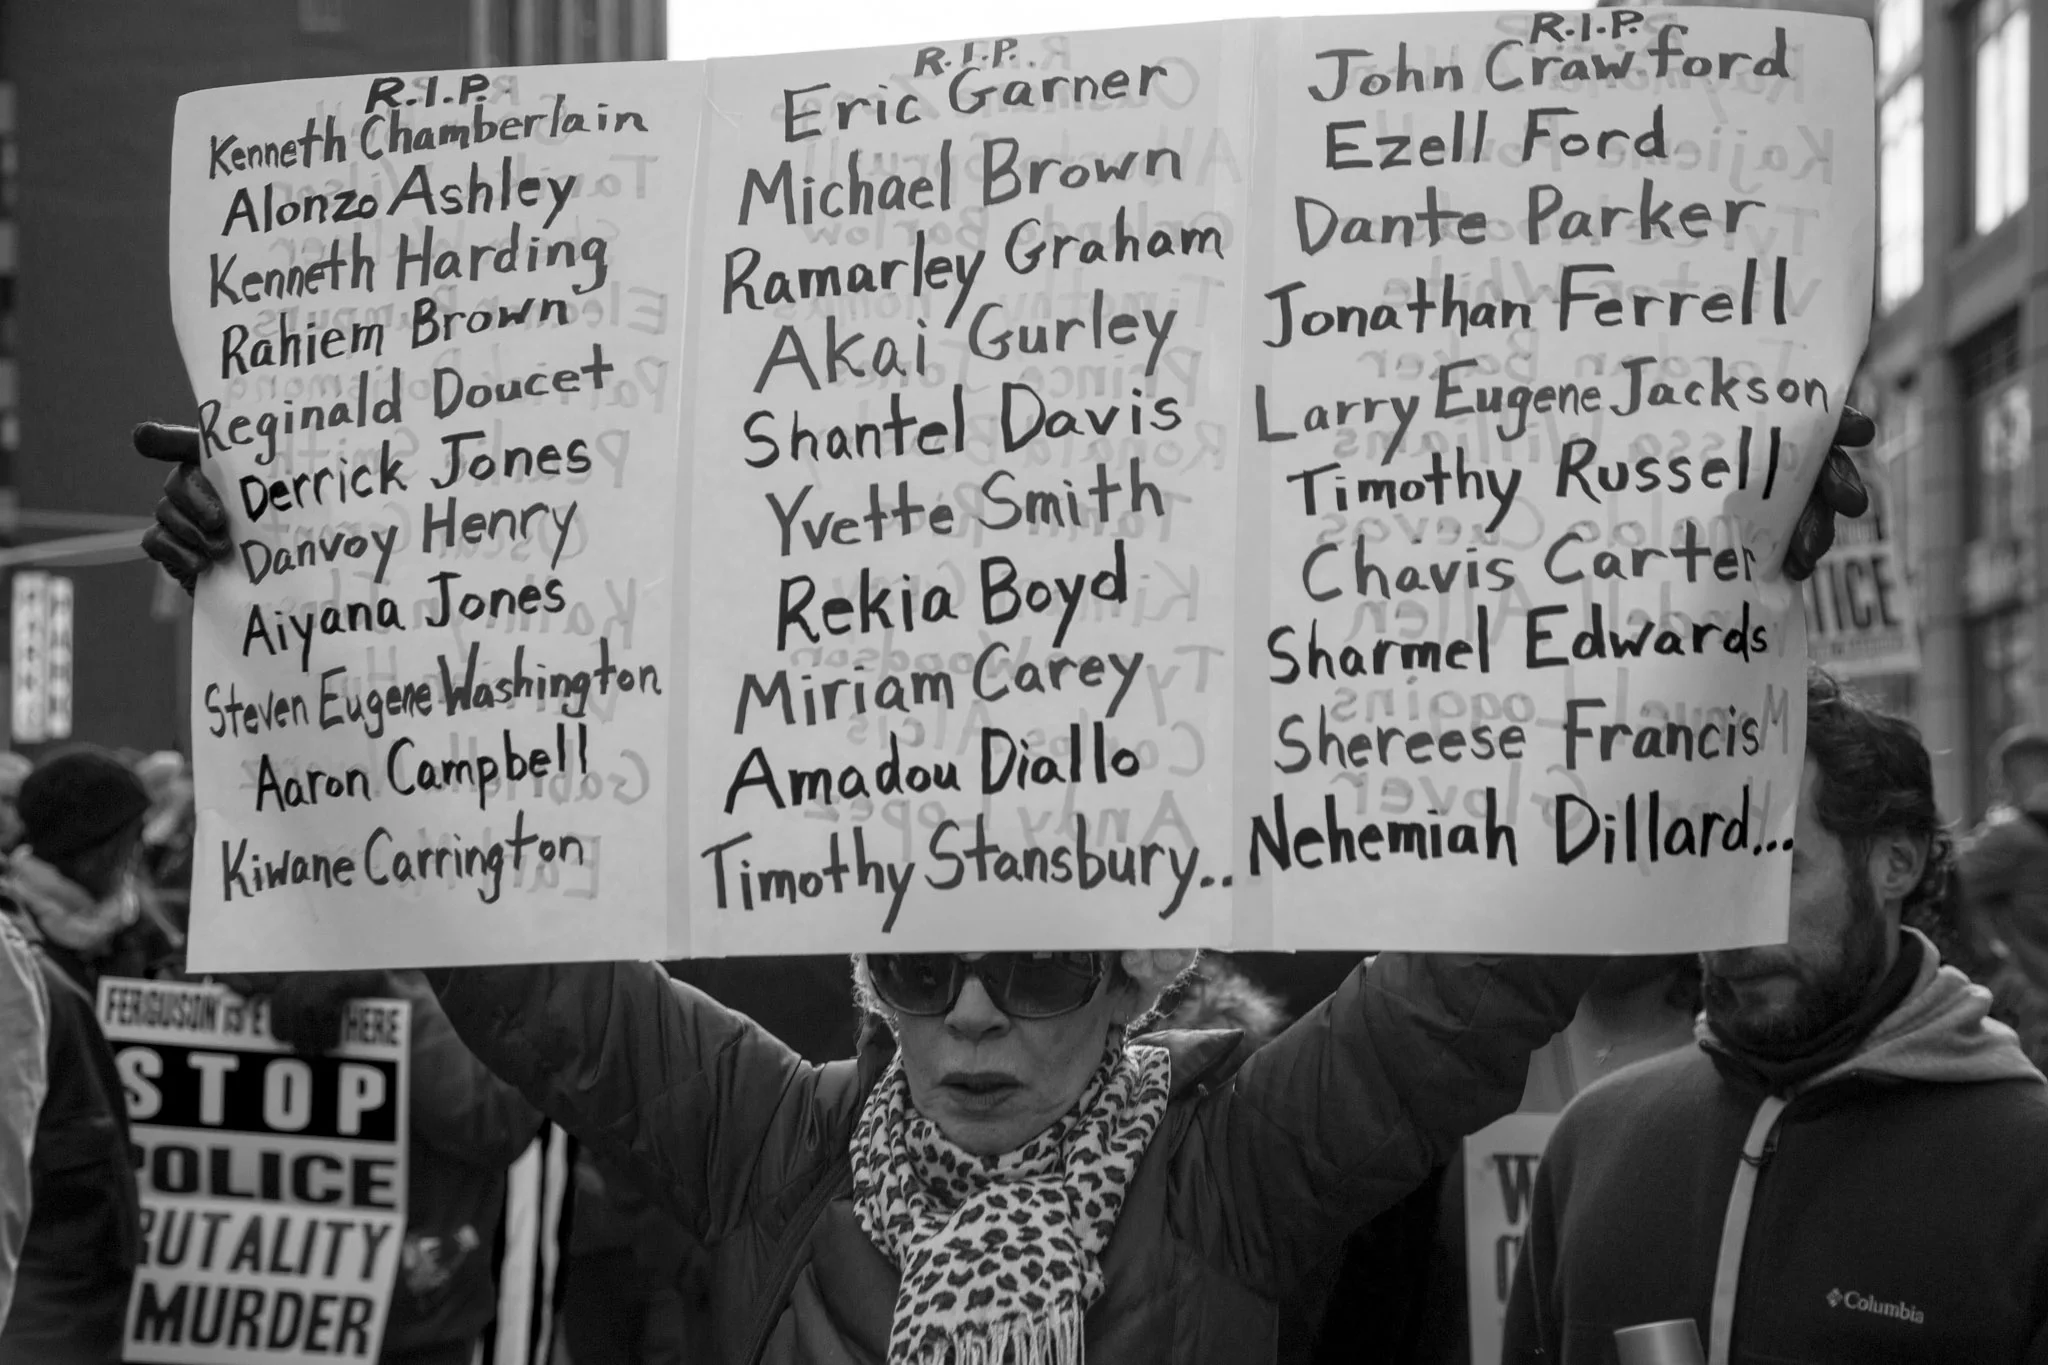 R.I.P.
Kenneth Chamberlain
Alonzo Ashley
Kenneth Harding
Rahiem Brown
Reginald Doucet
Derrick Jones
Danvoy Henry
Aiyana Jones
Steven Eugene Washington
Aaron Campbell
Kiwane Carrington
R.I.P.
Eric Garner
Michael Brown
Ramarley Graham
Akai Gurley
Shantel Davis
Yvette Smith
Rekia Boyd
Miriam Carey
Amadou Diallo
Timothy Stansbury..
R.I.P.
John Crawford
Ezell Ford
Dante Parker
Jonathan Ferrell
Larry Eugene Jackson
Timothy Russell
Chavis Carter
Sharmel Edwards
Shereese Francis
Nehemiah Dillard...
FERGUSON IS HERE
STOP
POLICE
BRUTALITY
MURDER
TICE
Columbia